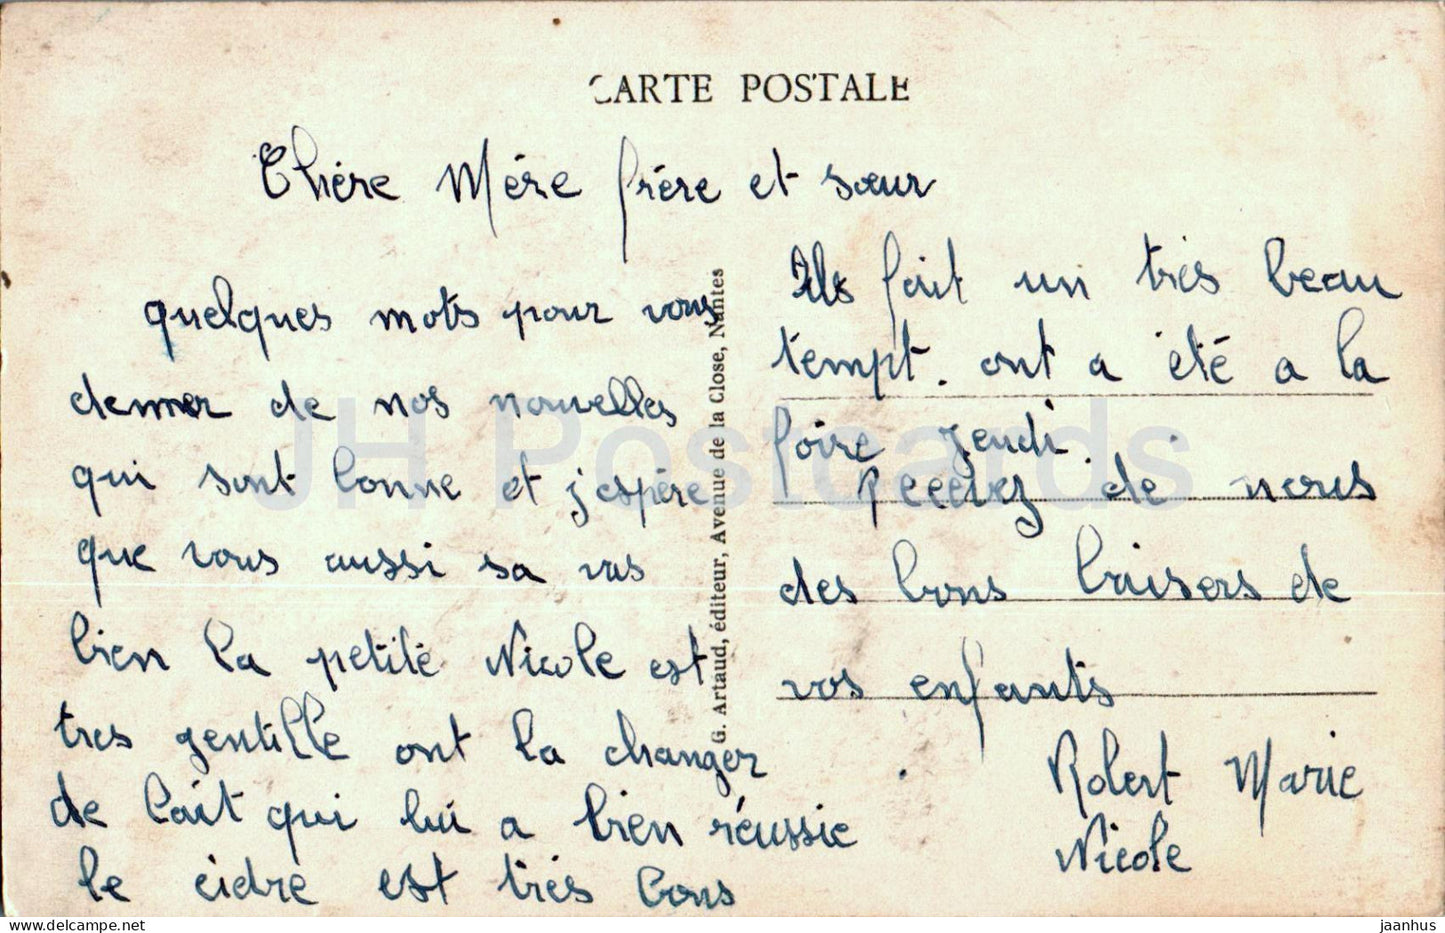 CARTE POSTALE
Chère Mère frère et sœur
quelques mots pour vous
demer de nos nouvelles
qui sont bonne et j'espère
que vous aussi sa vas
bien la petite Nicole est
tres gentille ont la changer
de lait qui lui a bien réussie
le cidre est très bons
G. Artaud, éditeur, Avenue de la Close, Nantes
Ils fait un très beau
tempt. ont a été a la
foire jeudi.
Recevez de nous
des bons baisers de
vos enfants
Robert Marie
Nicole
JH Postcards
HipPostcard.com
jaanhus